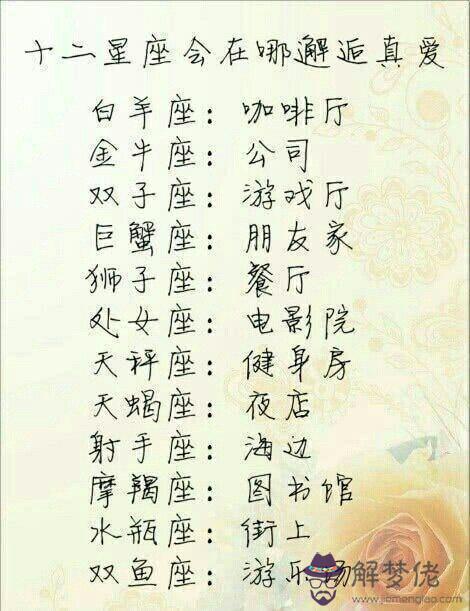 十二星座会在哪邂逅真爱
白羊座：咖啡厅
金牛座：公司
双子座：游戏厅
巨蟹座：朋友家
狮子座：餐厅
处女座：电影院
天秤座：健身房
天蝎座：夜店
射手座：海边
摩羯座：图书馆
水瓶座：街上
双鱼座：游乐场
解梦佬
www.jiemenglao.com